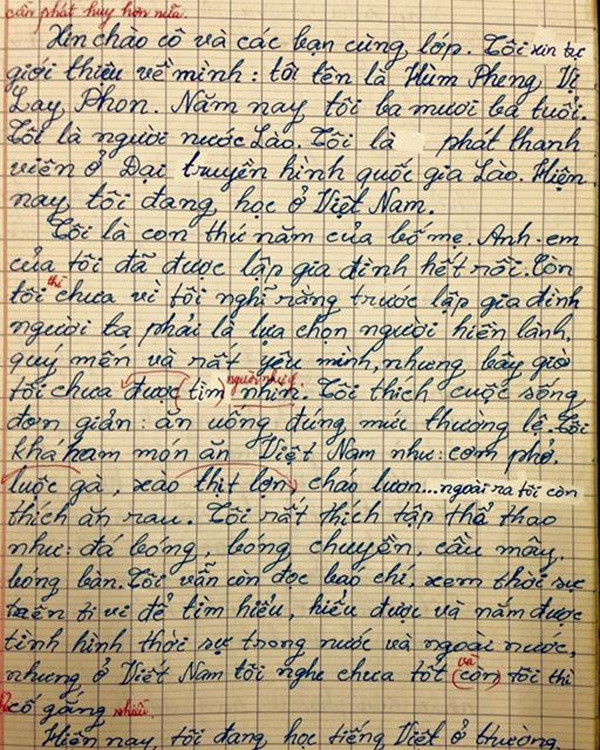 cần phát huy hơn nữa.
Xin chào cô và các bạn cùng lớp. Tôi xin tự
giới thiệu về mình: tôi tên là Hùm Pheng Vị
Lay Phon. Năm nay tôi ba mươi ba tuổi.
Tôi là người nước Lào. Tôi là phát thanh
viên ở Đại truyền hình quốc gia Lào. Hiện
nay tôi đang học ở Việt Nam.
Tôi là con thứ năm của bố mẹ. Anh em
của tôi đã được lập gia đình hết rồi. Còn
tôi thì chưa vì tôi nghĩ rằng trước lập gia đình
người ta phải là lựa chọn người hiền lành,
quý mến và rất yêu mình, nhưng bây giờ
tôi chưa được (tìm) người như ý. nhìn. Tôi thích cuộc sống
đơn giản: ăn uống đúng mức thường lệ. Tôi
khá ham món ăn Việt Nam như: cơm phở.
luộc gà, xào thịt lợn, cháo lươn... ngoài ra tôi còn
thích ăn rau. Tôi rất thích tập thể thao
như: đá bóng, bóng chuyền, cầu mây,
bóng bàn. Tôi vẫn còn đọc báo chí, xem thời sự
trên ti vi để tìm hiểu, hiểu được và nắm được
tình hình thời sự trong nước và ngoài nước,
nhưng ở Việt Nam tôi nghe chưa tốt và (còn) tôi thì
cố gắng nhiều.
Hiện nay, tôi đang học tiếng Việt ở thường